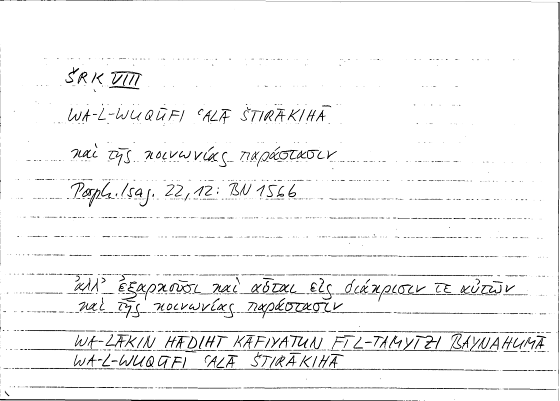 ŠRK VIII
WA-L-WUQŪFI ʿALĀ ŠTIRĀKIHĀ
καὶ τῆς κοινωνίας παράστασιν
Porph. Isag. 22, 12: BN 156b
ἀλλ' ἐξαρκοῦσι καὶ αὗται εἰς διάκρισιν τε αὐτῶν
καὶ τῆς κοινωνίας παράστασιν
WA-LĀKIN HĀḎIHT KĀFIYATUN FĪL-TAMYĪZI BAYNAHUMĀ
WA-L-WUQŪFI ʿALĀ ŠTIRĀKIHĀ